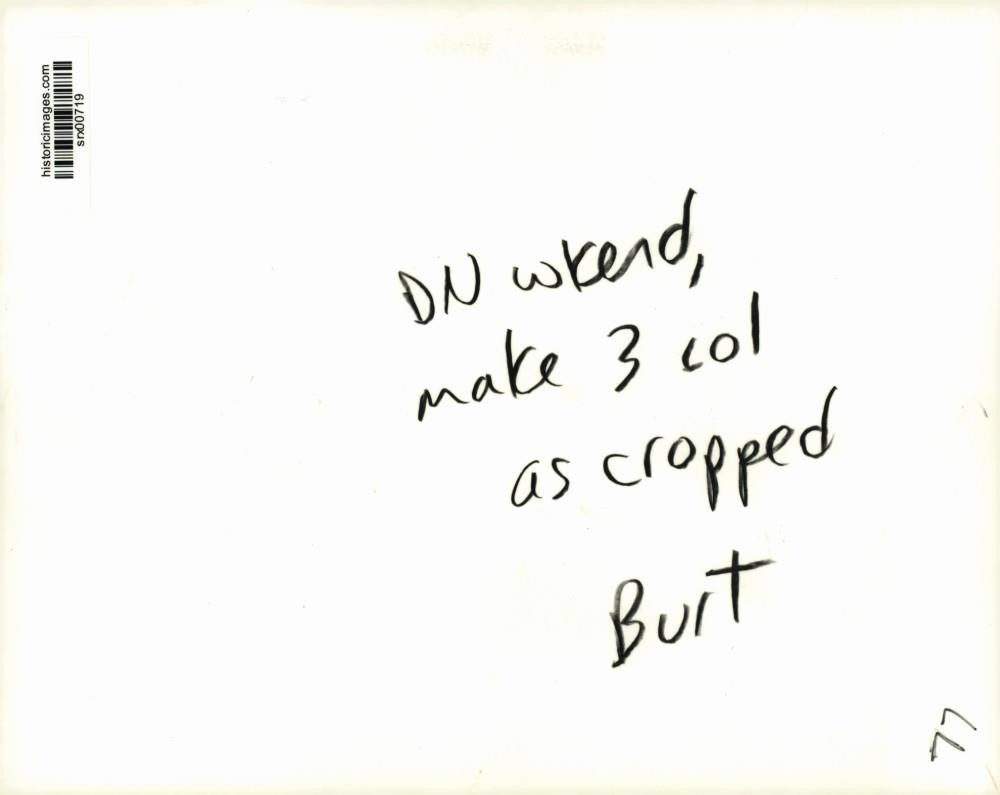 historicimages.com
srx00719
DN wkend,
make 3 col
as cropped
Burt
77